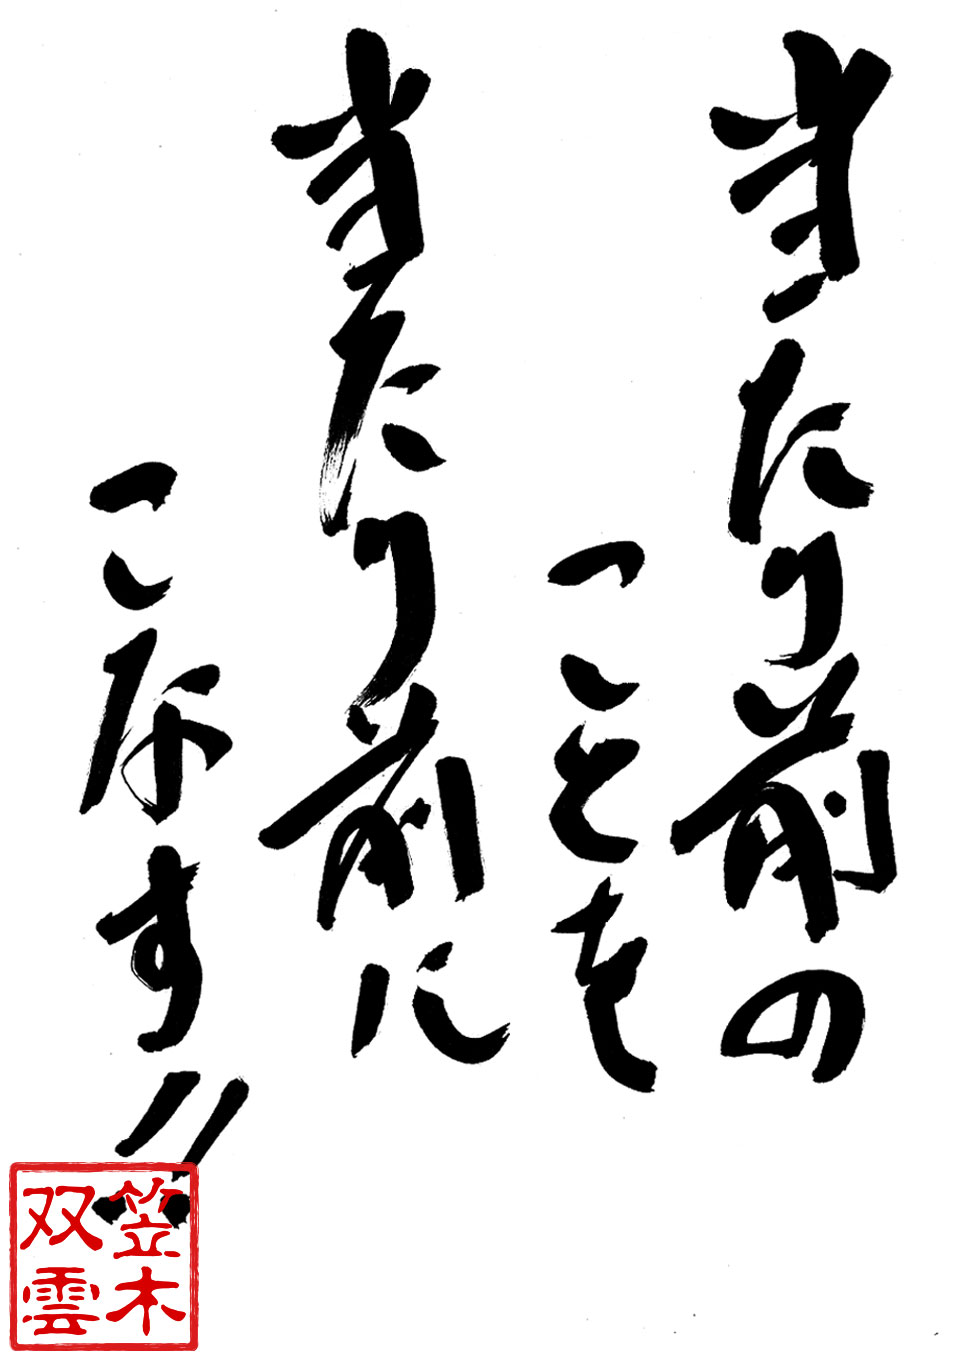 当たり前の
ことを
当たり前に
こなす!!
笠木
双雲